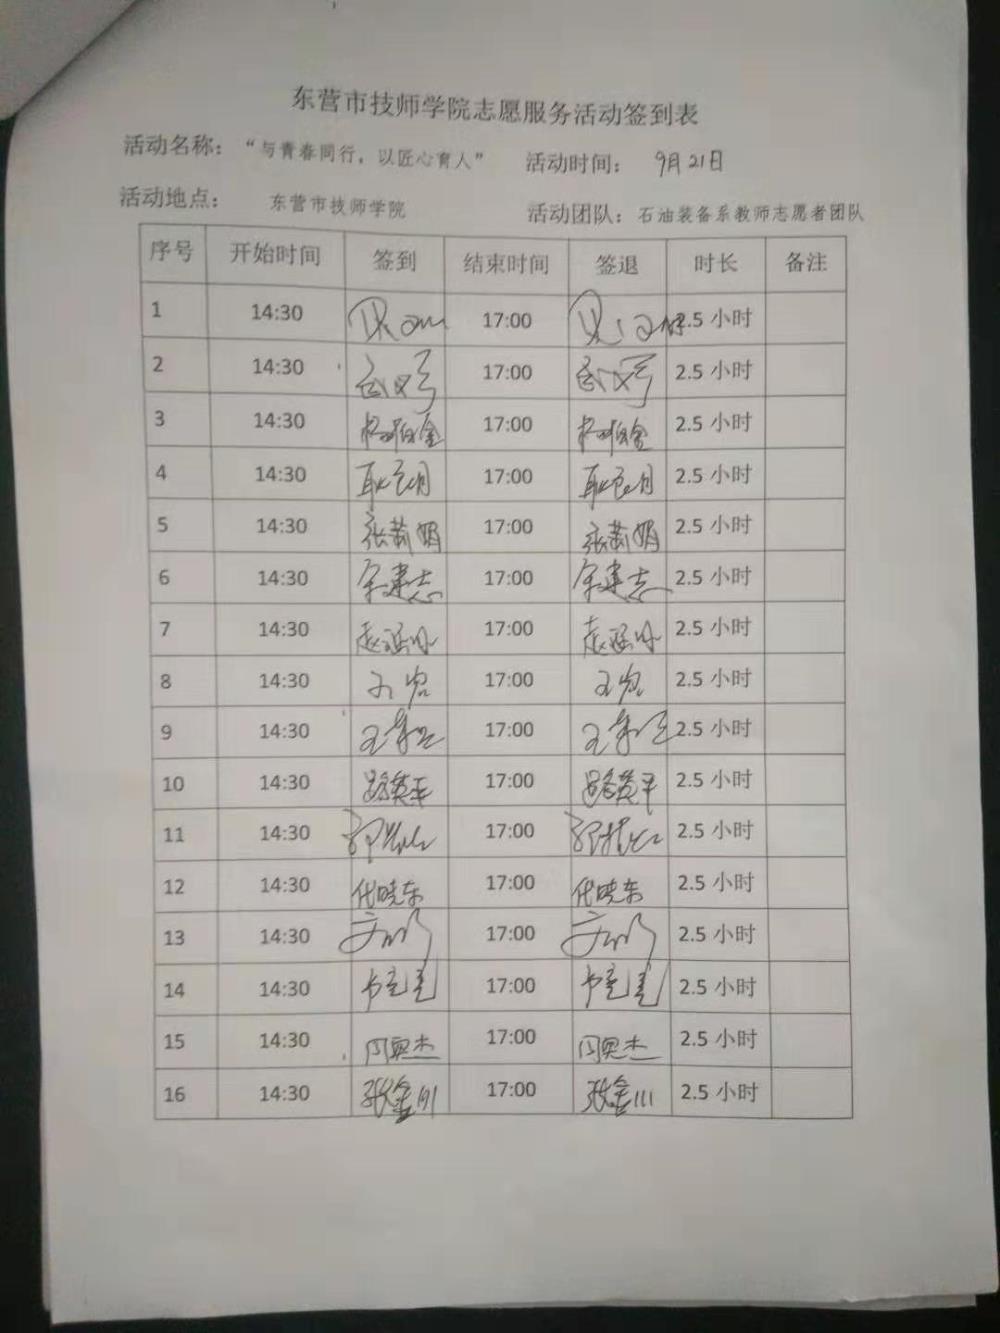 东营市技师学院志愿服务活动签到表
活动名称：“与青春同行，以匠心育人” 活动时间： 9月21日
活动地点： 东营市技师学院 活动团队：石油装备系教师志愿者团队
序号 开始时间 签到 结束时间 签退 时长 备注
1 14:30 17:00 2.5 小时
2 14:30 17:00 2.5 小时
3 14:30 17:00 2.5 小时
4 14:30 17:00 2.5 小时
5 14:30 张莉娟 17:00 张莉娟 2.5 小时
6 14:30 宋建志 17:00 宋建志 2.5 小时
7 14:30 17:00 2.5 小时
8 14:30 17:00 2.5 小时
9 14:30 17:00 2.5 小时
10 14:30 路英平 17:00 路英平 2.5 小时
11 14:30 17:00 2.5 小时
12 14:30 代晓东 17:00 代晓东 2.5 小时
13 14:30 17:00 2.5 小时
14 14:30 17:00 2.5 小时
15 14:30 闫奥杰 17:00 闫奥杰 2.5 小时
16 14:30 张金川 17:00 张金川 2.5 小时